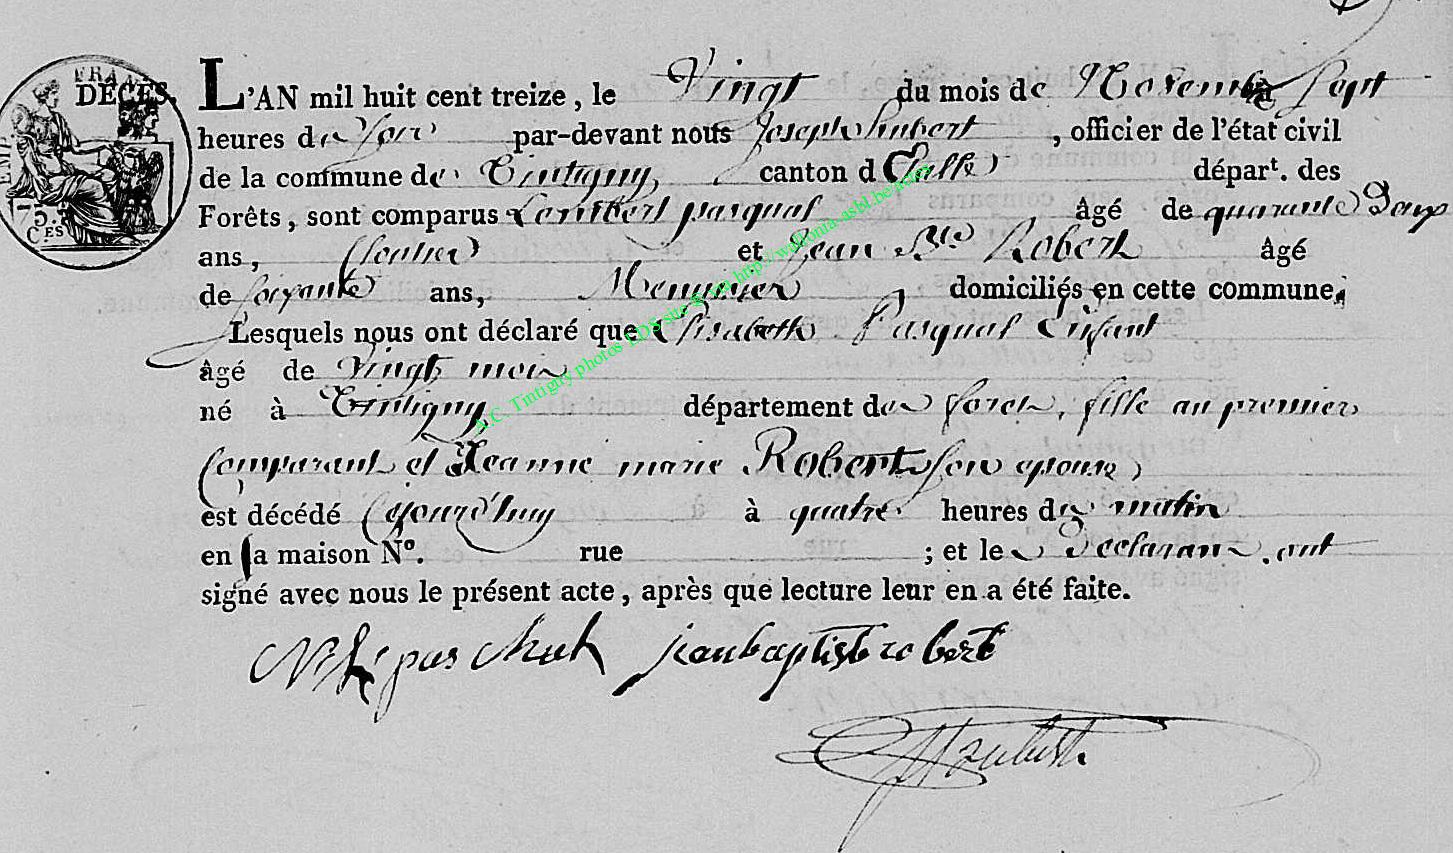 FRAN
DÉCÈS.
EMP.
5.
C.ES
L'AN mil huit cent treize, le Vingt du mois de Novembre a Sept
heures du Soir par-devant nous Joseph hubert, officier de l'état civil
de la commune de Tintigny, canton d'Etalle départ. des
Forêts, sont comparus Lambert pasqual âgé de quarante Deux
ans, et Jean Bte Robert âgé
de soixante ans, Meunnier domiciliés en cette commune,
Lesquels nous ont déclaré que Elisabeth Pasqual Enfant
âgé de Vingt mois
né à Tintigny département des forets, fille au premier
Comparant et Jeanne marie Robert son epouse,
est décédé Cejourd'huy à quatre heures du matin
en sa maison N°. rue ; et les Declarans ont
signé avec nous le présent acte, après que lecture leur en a été faite.
jean baptiste robert
A.C. Tintigny photos LDS site @ via http://wallonia-asbl.be/actes